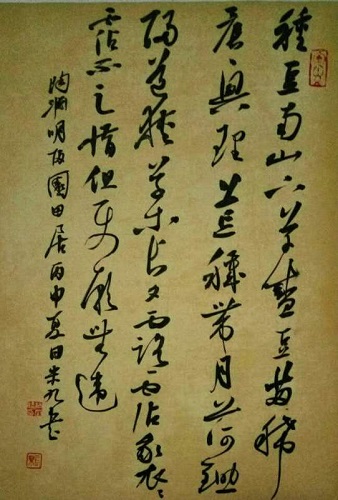 種豆南山下草盛豆苗稀
晨興理荒穢帶月荷鋤
歸道狹草木長夕露沾我衣〻
霑不足惜但使願無違
陶淵明歸園田居丙申夏日